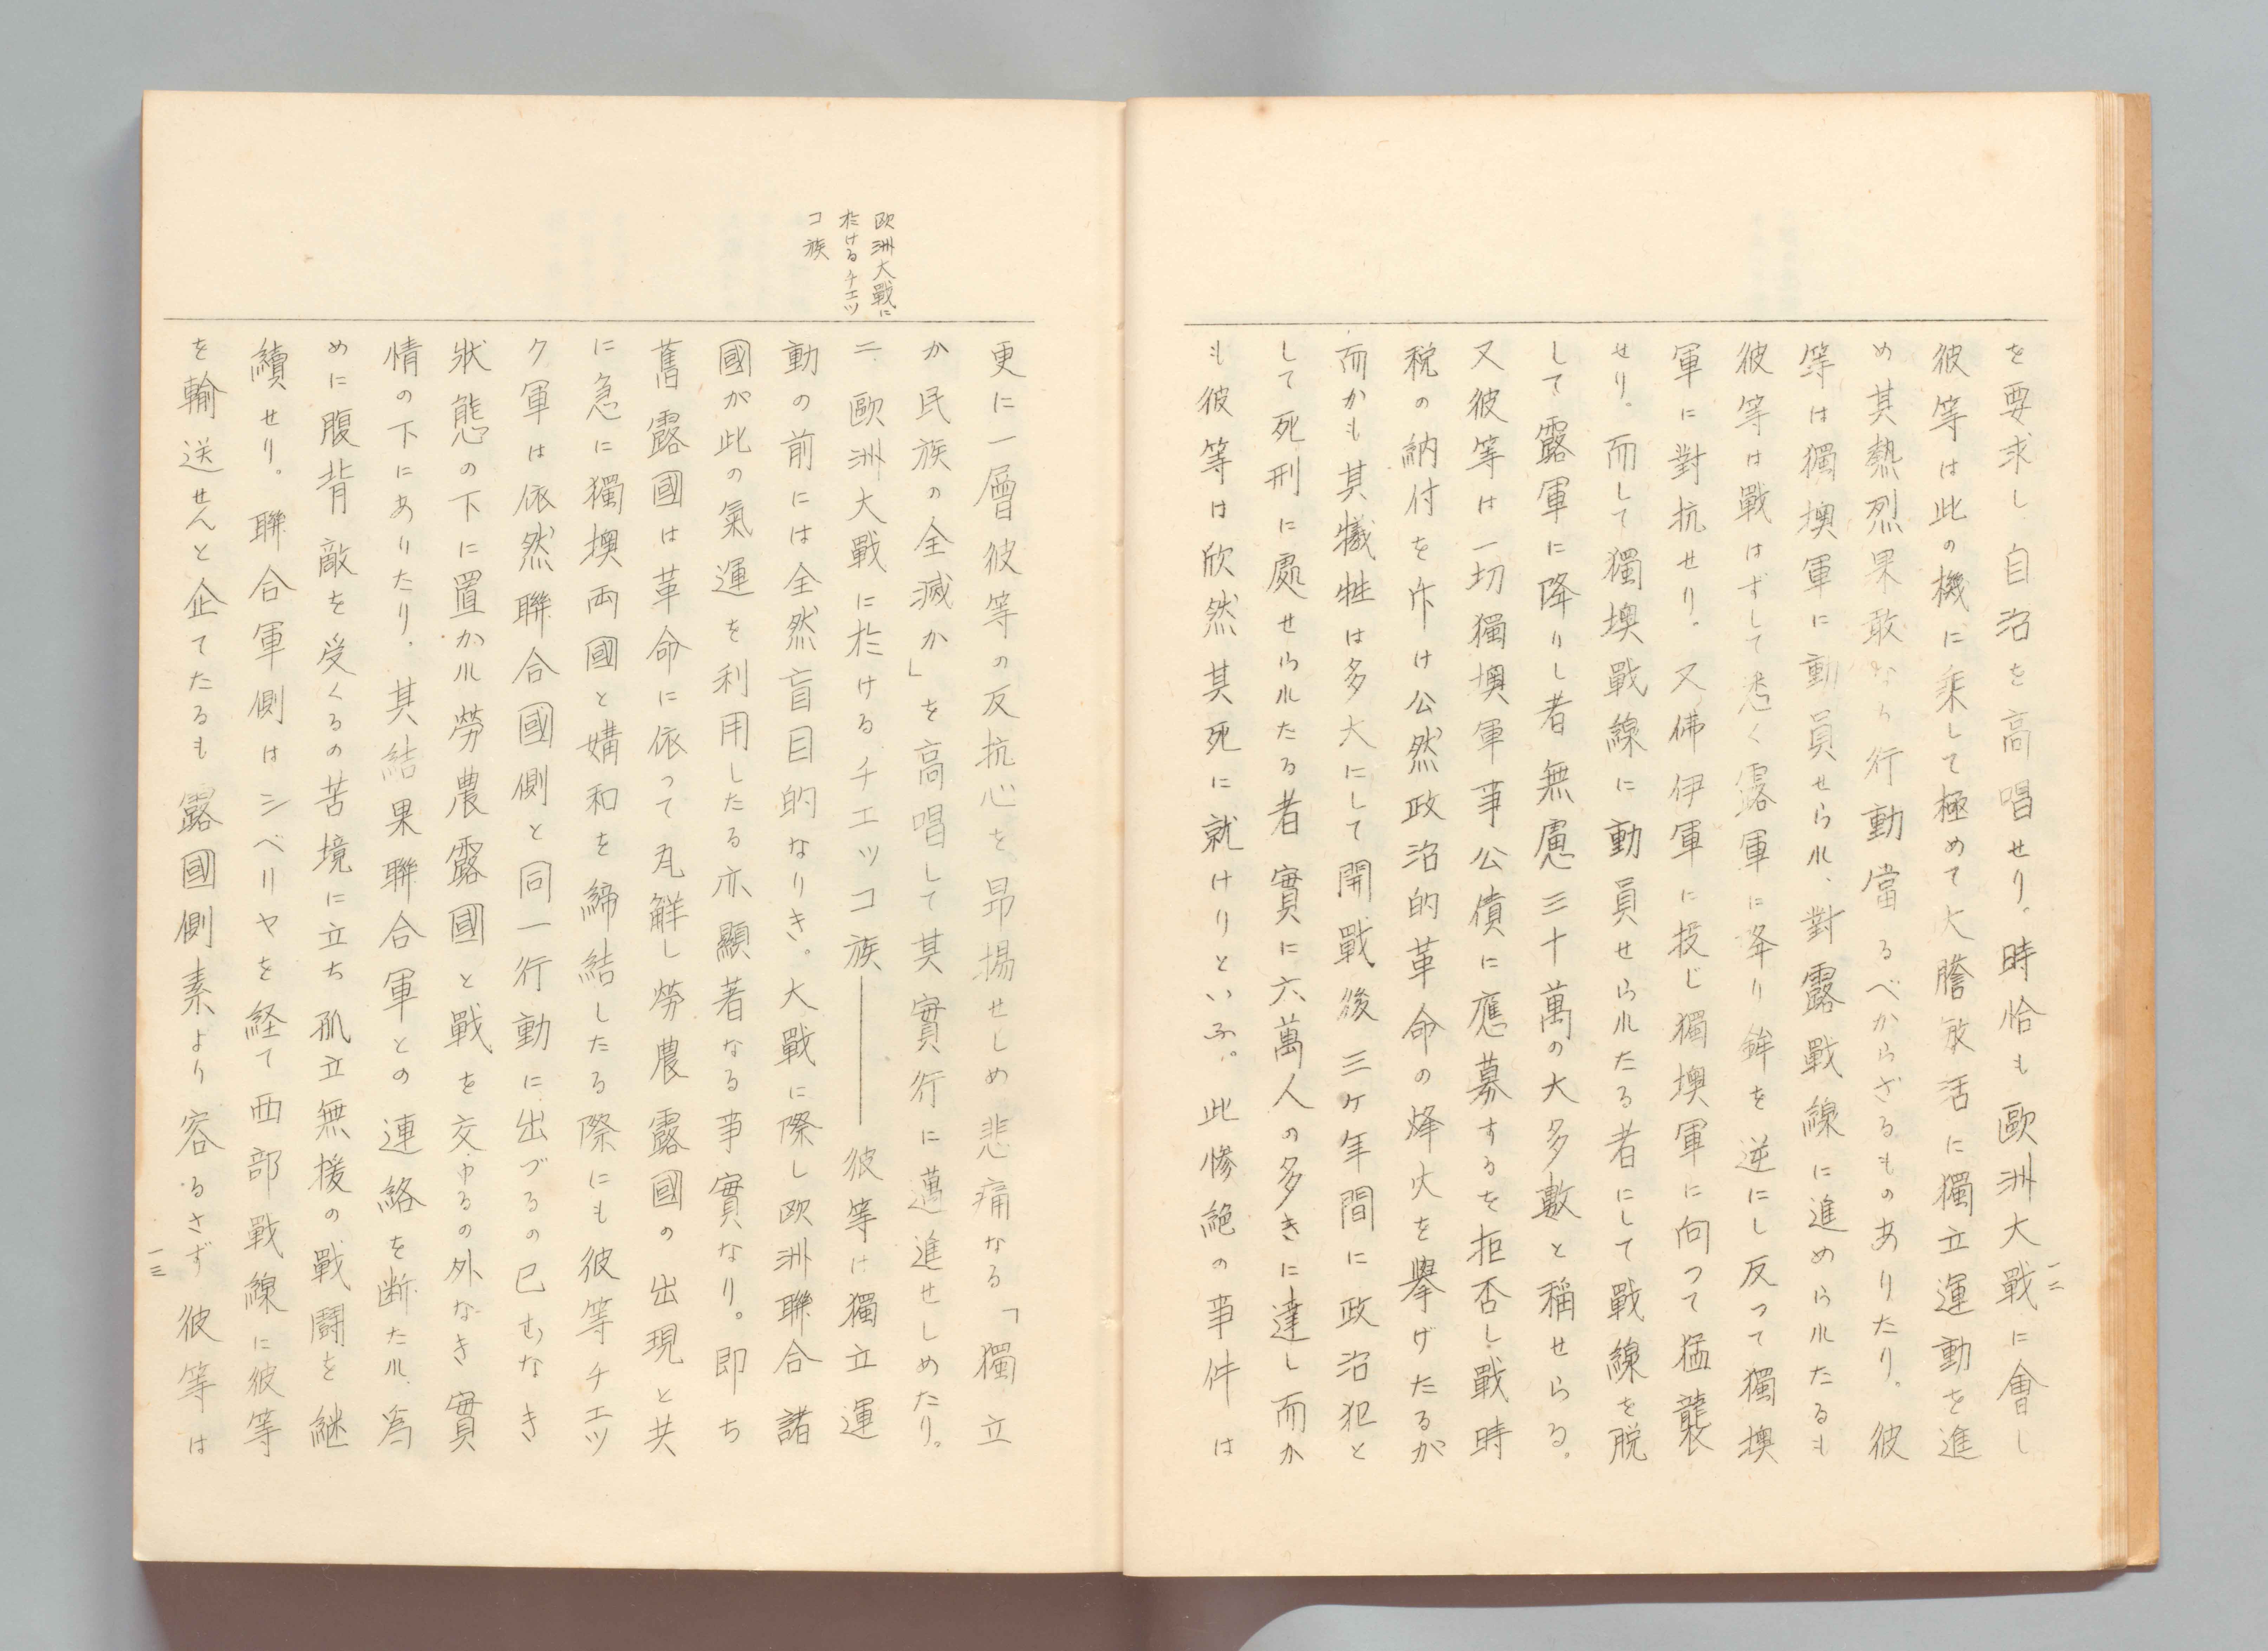 を要求し自治を高唱せり。時恰も歐洲大戰に會し
彼等は此の機に乘して極めて大膽放活に獨立運動を進
め其熱烈果敢なる行動當るべからざるものありたり。彼
等は獨墺軍に動員せられ、對露戰線に進められたるも
彼等は戰はずして悉く露軍に降り鉾を逆にし反つて獨墺
軍に對抗せり。又佛伊軍に投じ獨墺軍に向つて猛襲
せり。而して獨墺戰線に動員せられたる者にして戰線を脱
して露軍に降りし者無慮三十萬の大多數と稱せらる。
又彼等は一切獨墺軍事公債に應募するを拒否し戰時
税の納付を斥け公然政治的革命の烽火を擧げたるが
而かも其犠牲は多大にして開戰後三ケ年間に政治犯と
して死刑に處せられたる者實に六萬人の多きに達し而か
も彼等は欣然其死に就けりといふ。此慘絶の事件は
一二
更に一層彼等の反抗心を昂揚せしめ悲痛なる「獨立
か民族の全滅か」を高唱して其實行に邁進せしめたり。
欧洲大戰に
於けるチエツ
コ族
二、歐洲大戰に於けるチエツコ族――彼等は獨立運
動の前には全然盲目的なりき。大戰に際し欧洲聯合諸
國が此の氣運を利用したる亦顯著なる事實なり。即ち
舊露國は革命に依つて瓦解し勞農露國の出現と共
に急に獨墺両國と媾和を締結したる際にも彼等チエツ
ク軍は依然聯合國側と同一行動に出づるの已むなき
狀態の下に置かれ勞農露國と戰を交ゆるの外なき實
情の下にありたり。其結果聯合軍との連絡を断たれ、爲
めに腹背敵を受くるの苦境に立ち孤立無援の戰鬪を継
續せり。聯合軍側はシベリヤを経て西部戰線に彼等
を輸送せんと企てたるも露國側素より容るさず彼等は
一三